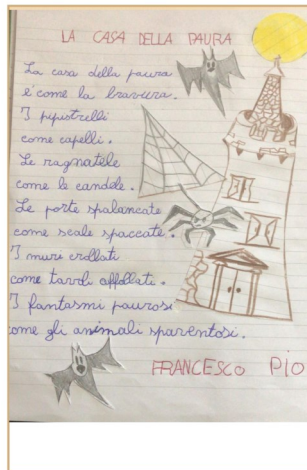 LA CASA DELLA PAURA
La casa della paura
è come la bravura.
I pipistrelli
come capelli.
Le ragnatele
come le candele.
Le porte spalancate
come scale spaccate.
I muri crollati
come tavoli affollati.
I fantasmi paurosi
come gli animali spaventosi.
FRANCESCO PIO